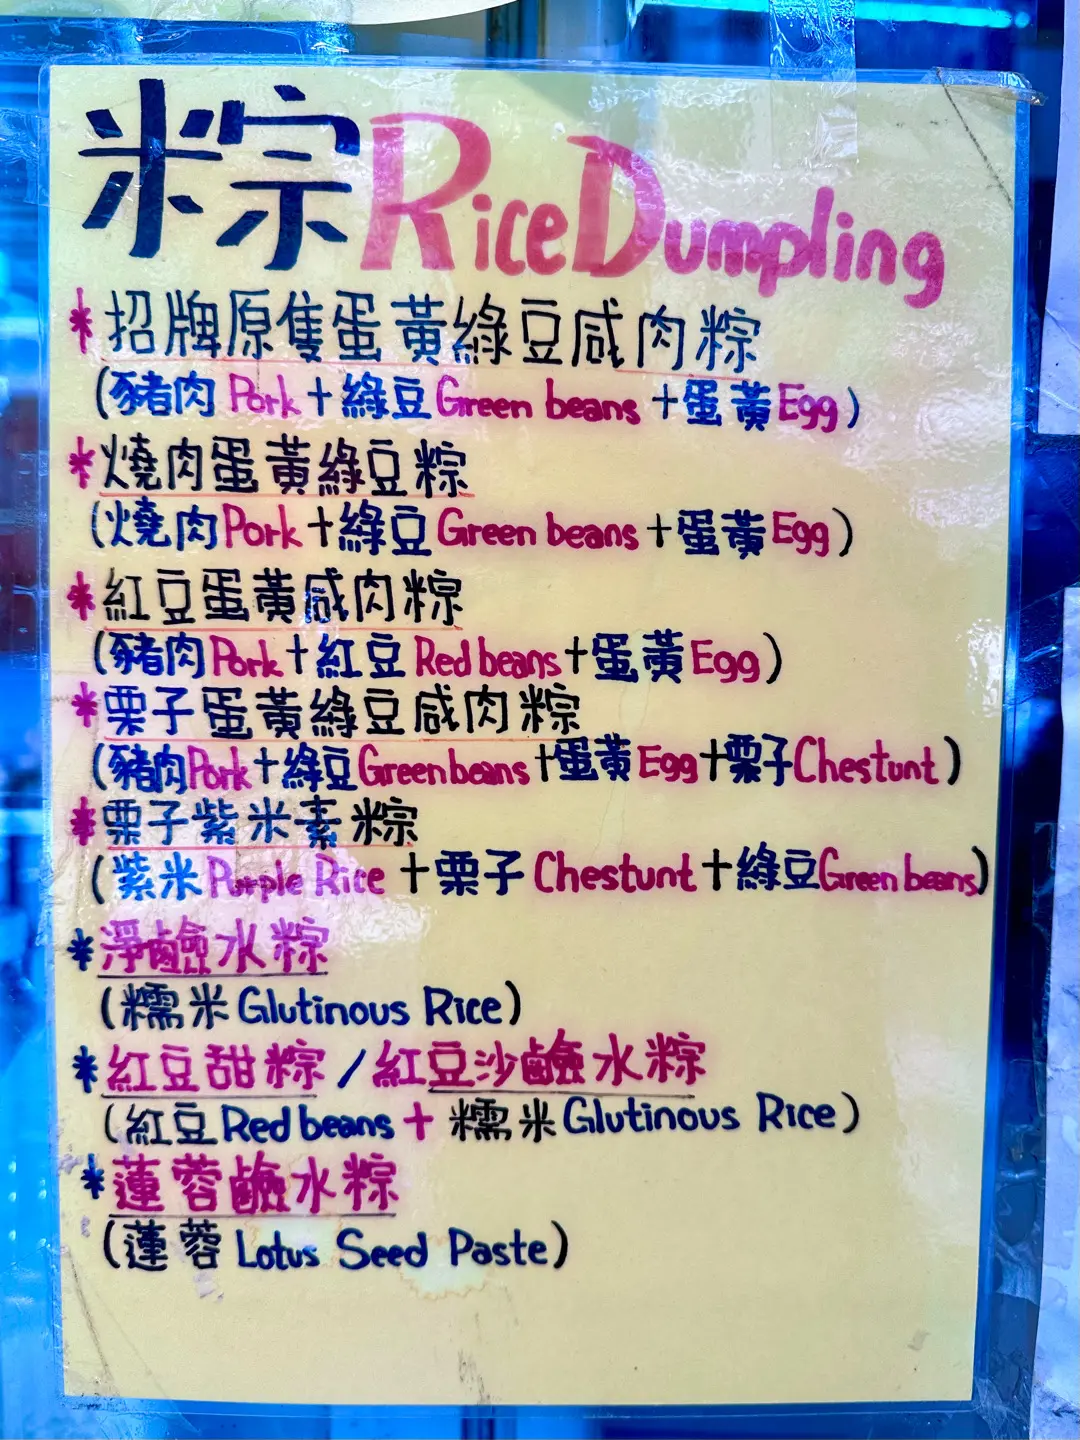 粽 Rice Dumpling
*招牌原隻蛋黃綠豆咸肉粽
(豬肉 Pork + 綠豆 Green beans + 蛋黃 Egg)
*燒肉蛋黃綠豆粽
(燒肉 Pork + 綠豆 Green beans + 蛋黃 Egg)
*紅豆蛋黃咸肉粽
(豬肉 Pork + 紅豆 Red beans + 蛋黃 Egg)
*栗子蛋黃綠豆咸肉粽
(豬肉 Pork + 綠豆 Green beans + 蛋黃 Egg + 栗子 Chestunt)
*栗子紫米素粽
(紫米 Purple Rice + 栗子 Chestunt + 綠豆 Green beans)
*淨鹼水粽
(糯米 Glutinous Rice)
*紅豆甜粽 / 紅豆沙鹼水粽
(紅豆 Red beans + 糯米 Glutinous Rice)
*蓮蓉鹼水粽
(蓮蓉 Lotus Seed Paste)